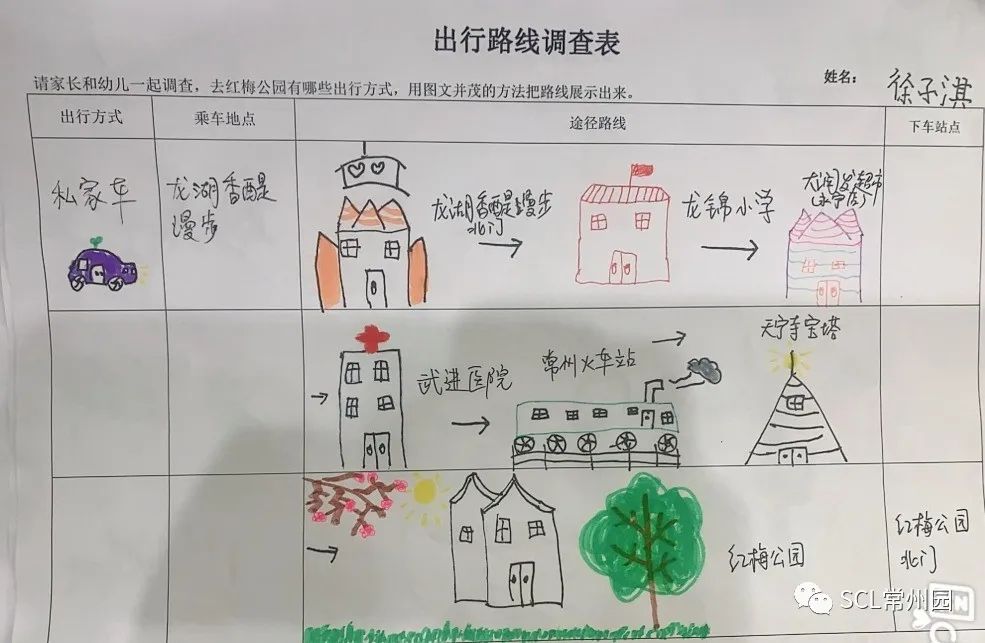 出行路线调查表
请家长和幼儿一起调查，去红梅公园有哪些出行方式，用图文并茂的方法把路线展示出来。
姓名：
徐子淇
出行方式
乘车地点
途径路线
下车站点
私家车
龙湖香醍
漫步
龙湖香醍漫步
北门
龙锦小学
大润发超市
天宁寺宝塔
武进医院
常州火车站
红梅公园
红梅公园
北门
SCL常州园